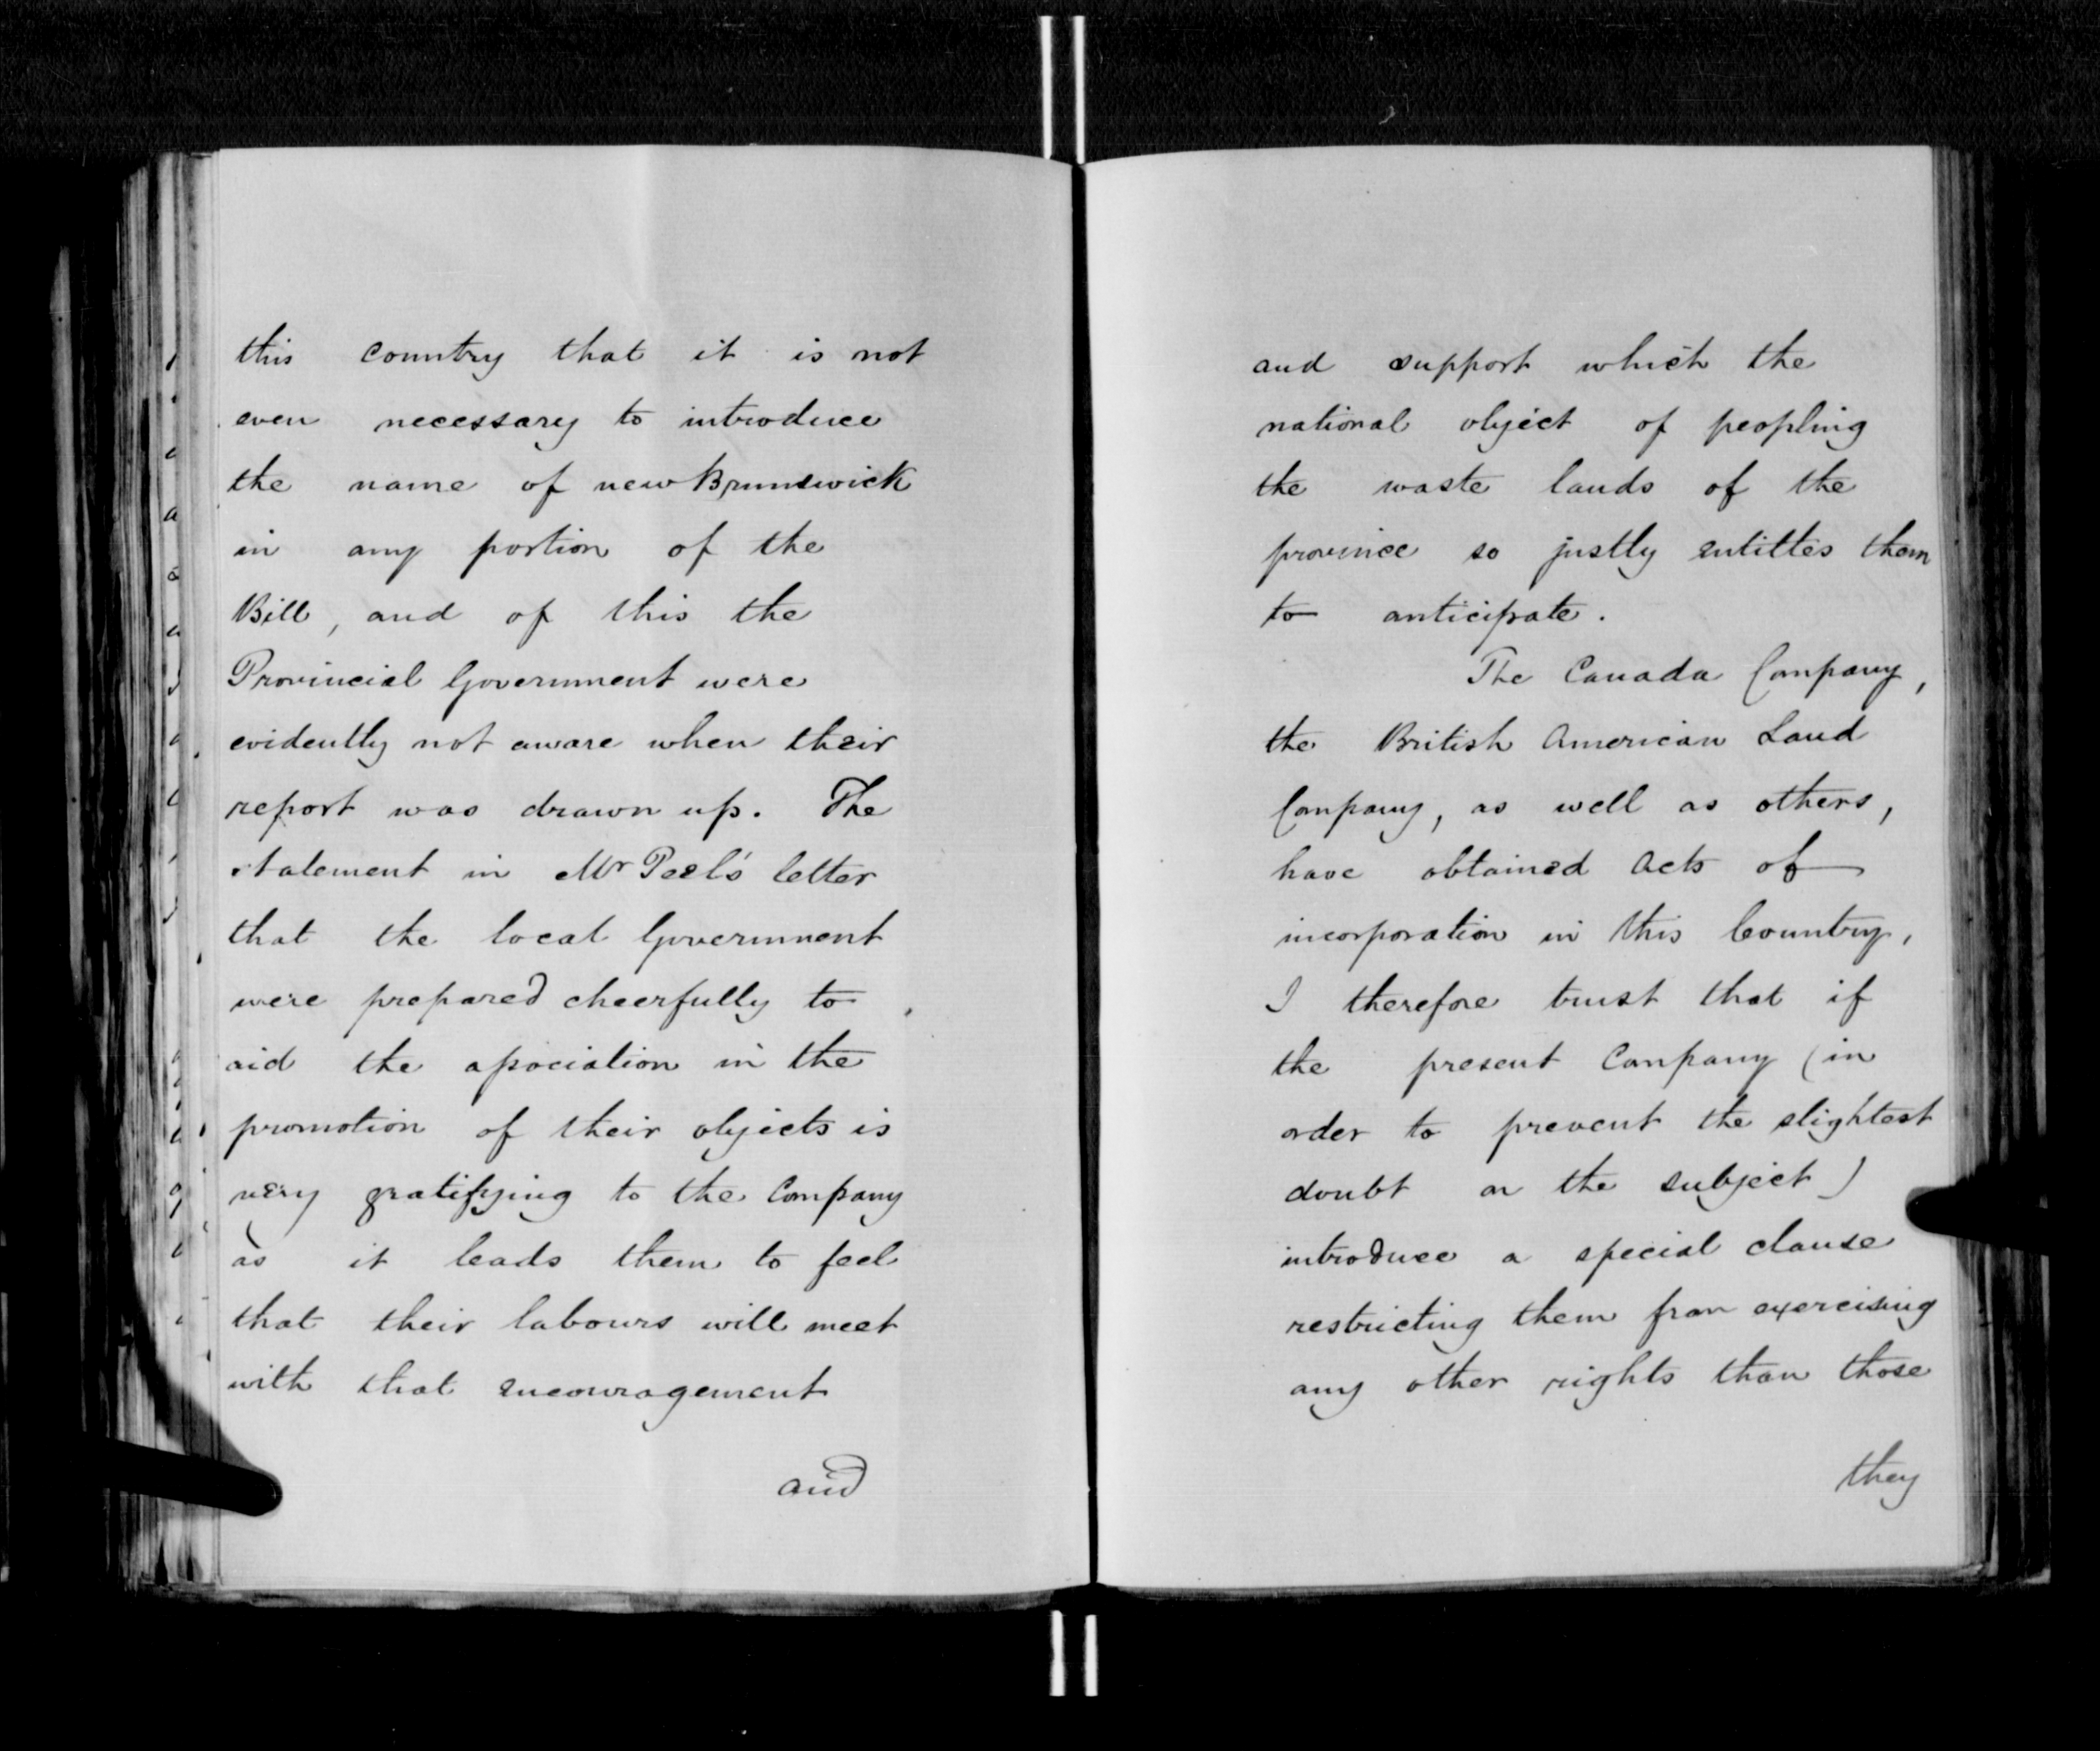 this country that it is not
even necessary to introduce
the name of new Brunswick
in any portion of the
Bill, and of this the
Provincial Government were
evidently not aware when their
report was drawn up. The
statement in Mr Peel's letter
that the local Government
were prepared cheerfully to
aid the association in the
promotion of their objects is
very gratifying to the Company
as it leads them to feel
that their labours will meet
with that encouragement
and
and support which the
national object of peopling
the waste lands of the
province so justly entittes them
to anticipate.
The Canada Company,
the British American Land
Company, as well as others,
have obtained Acts of
incorporation in this Country,
I therefore trust that if
the present Company (in
order to prevent the slightest
doubt on the subject)
introduce a special clause
restricting them from exercising
any other rights than those
they